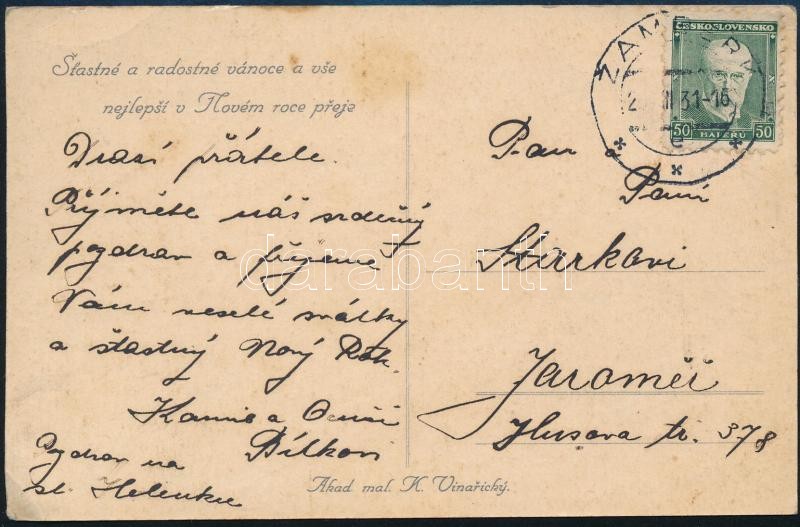 Šťastné a radostné vánoce a vše
nejlepší v Novém roce přeje
Drazí přátele.
Přijměte náš srdečný
pozdrav a přejeme
Vám veselé svátky
a šťastný Nový Rok.
Kamil a
Bílkovi
Pozdrav na
sl. Helenku
Akad mal. K. Vinařický.
Pan
Paní
Stárkovi
Jaroměř
Husova tr. 378
ČESKOSLOVENSKO
50 HALÉŘŮ 50
31-16
darabanth.com